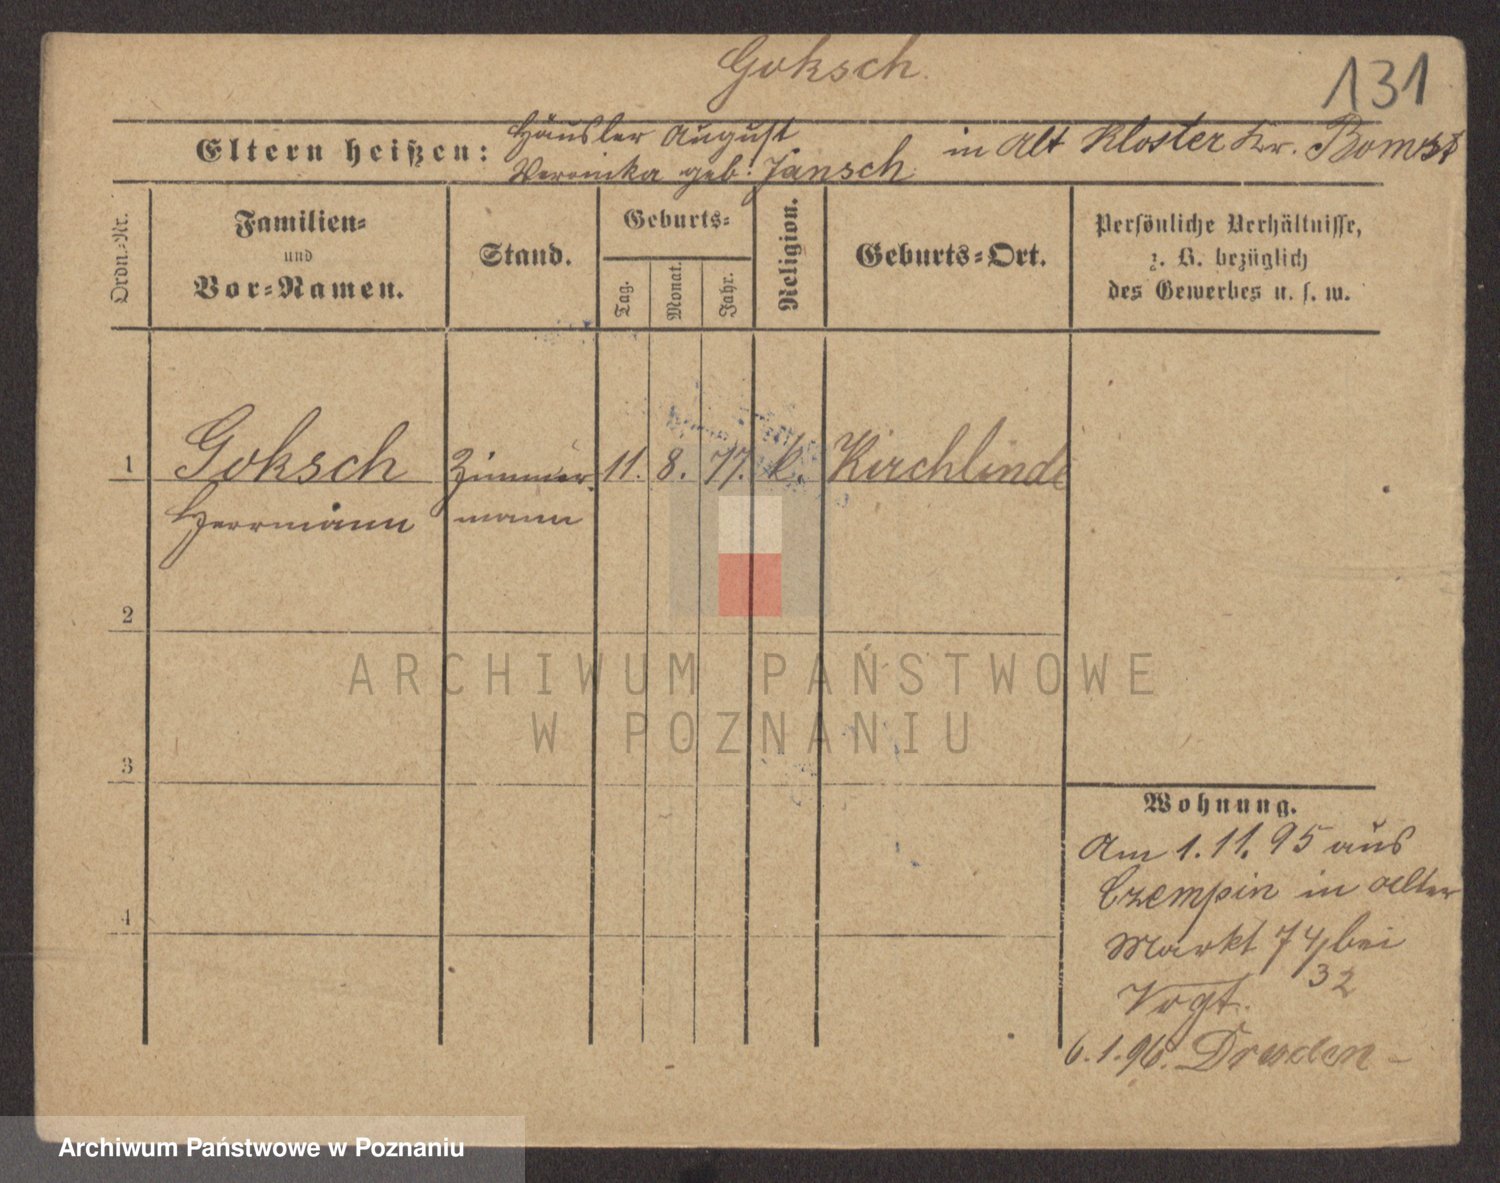 Goksch.
131
Eltern heißen:
Häusler August
Veronika geb. Jansch
in Alt Kloster Kr. Bomst
Ordn.-Nr.
Familien-
und
Vor-Namen.
Stand.
Geburts-
Tag.
Monat.
Jahr.
Religion.
Geburts-Ort.
Persönliche Verhältnisse,
z. B. bezüglich
des Gewerbes u. s. w.
1 Goksch Zimmer- 11. 8. 77. k. Kirchlinde
Herrmann mann
2
3
4
Wohnung.
Am 1.11.95 aus
Czempin in Alter
Markt 74 bei
32
Vogt.
6.1.96. Dresden -
ARCHIWUM PAŃSTWOWE
W POZNANIU
Archiwum Państwowe w Poznaniu